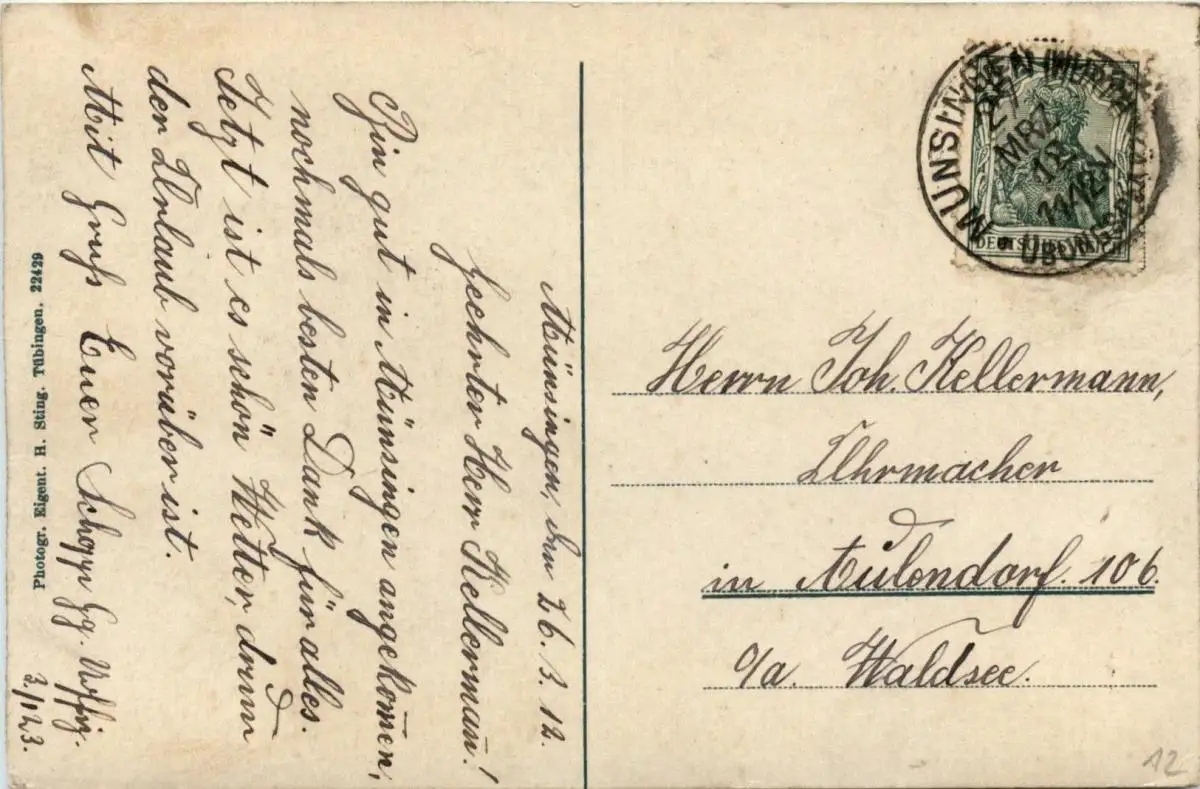 Münsingen, den 26. 3. 12.
Geehrter Herr Kellerman̄!
Bin gut in Münsingen angekom̄en,
nochmals besten Dank für alles.
Jetzt ist es schön Wetter, drum
der Urlaub vorüber ist.
Mit Gruß Euer
3./123.
Photogr. Eigent. H. Sting. Tübingen. 22429
MÜNSINGEN (WÜRTT)
27
MRZ
12
11-12V
ÜBUNGSPLATZ
DEUTSCHES REICH
Herrn Joh. Kellermann,
Uhrmacher
in Aulendorf. 106.
o/a. Waldsee.
12